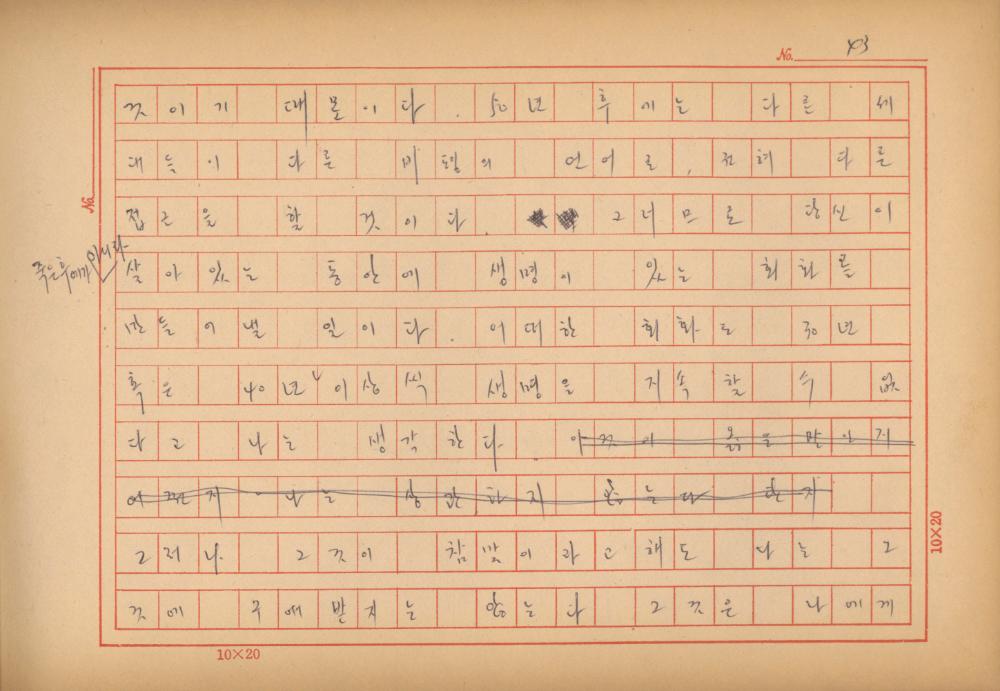 No. 43
것이기 때문이다. 50년 후에는 다른 세
대들이 다른 비평의 언어로, 전혀 다른
No.
접근을 할 것이다. 그러므로 당신이
죽은 후에가 아니라
살아 있는 동안에 생명이 있는 회화를
만들어낼 일이다. 어떠한 회화도 30년
혹은 40년 이상씩 생명을 지속할 수 없
다고 나는 생각한다. 이것이 옳을 말이지
어쩐지 나는 상관하지 않는다 한지
그러나 그것이 참말이라고 해도 나는 그
것에 구애받지는 않는다 그것은 나에게
10×20
10×20